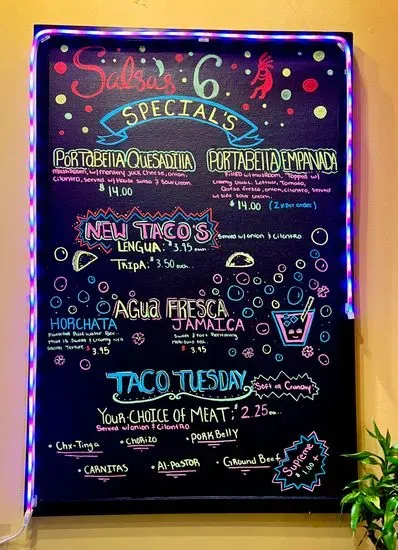 Salsa's 6
SPECIAL'S
PORTABELLA QUESADILLA
mushroom, w/ montery jack cheese, onion,
cilantro, served w/ House salsa & sour cream.
$14.00
PORTABELLA EMPANADA
Filled w/ mushroom, Topped w/
creamy chipotle, Lettuce, Tomato,
Queso fresco, onion, cilantro, served
w/ side sour cream.
$14.00 (2 xs per order)
NEW TACO'S
Served w/ onion & cilantro
LENGUA: $3.95 each..
TRIPA: $3.50 each..
AGUA FRESCA
HORCHATA
Flavorful Rice water Bev..
that is sweet & creamy w/ a
smooth Texture $3.95
JAMAICA
Sweet & Tart Refreshing
Hibiscus tea..
$3.95
TACO TUESDAY
Soft or Crunchy
YOUR CHOICE OF MEAT: $2.25 ea..
Served w/ onion & cilantro
• Chx-Tinga
• CHORIZO
• PORK Belly
• CARNITAS
• Al-PASTOR
• Ground Beef
Supreme
$1.00 +